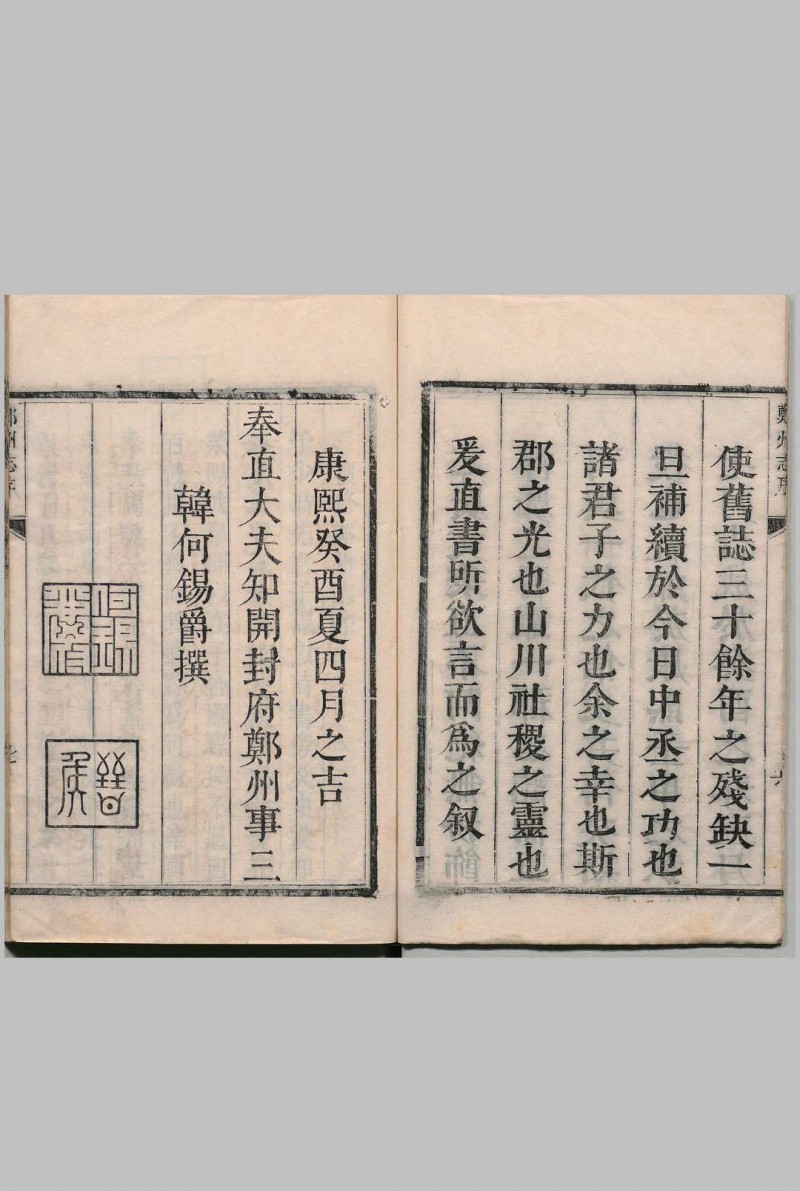 鄭州志序
使舊誌三十餘年之殘缺一
旦補續於今日中丞之功也
諸君子之力也余之幸也斯
郡之光也山川社稷之靈也
爰直書所欲言而為之叙
康熙癸酉夏四月之吉
奉直大夫知開封府鄭州事三
韓何錫爵撰
鄭州志序